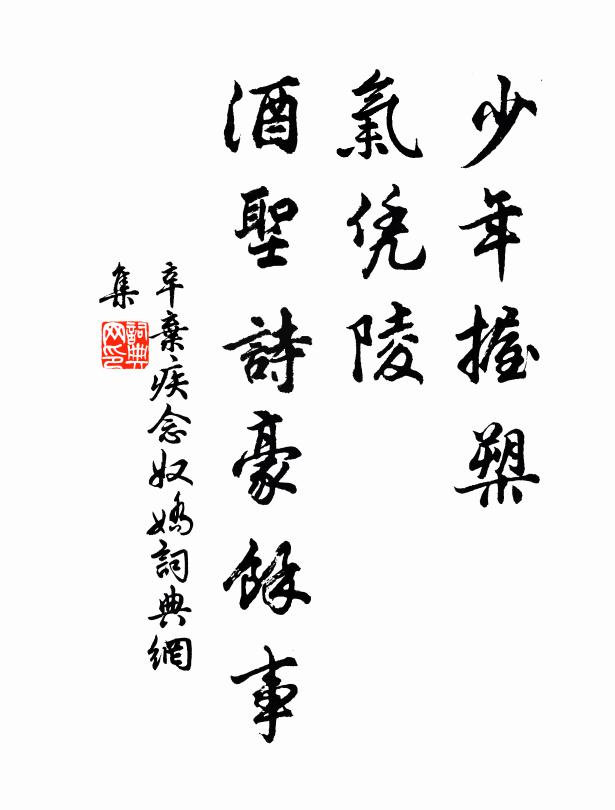 少年握槊
氣凭陵
酒聖詩豪餘事
辛棄疾念奴嬌詞典網
集
詞典
网印